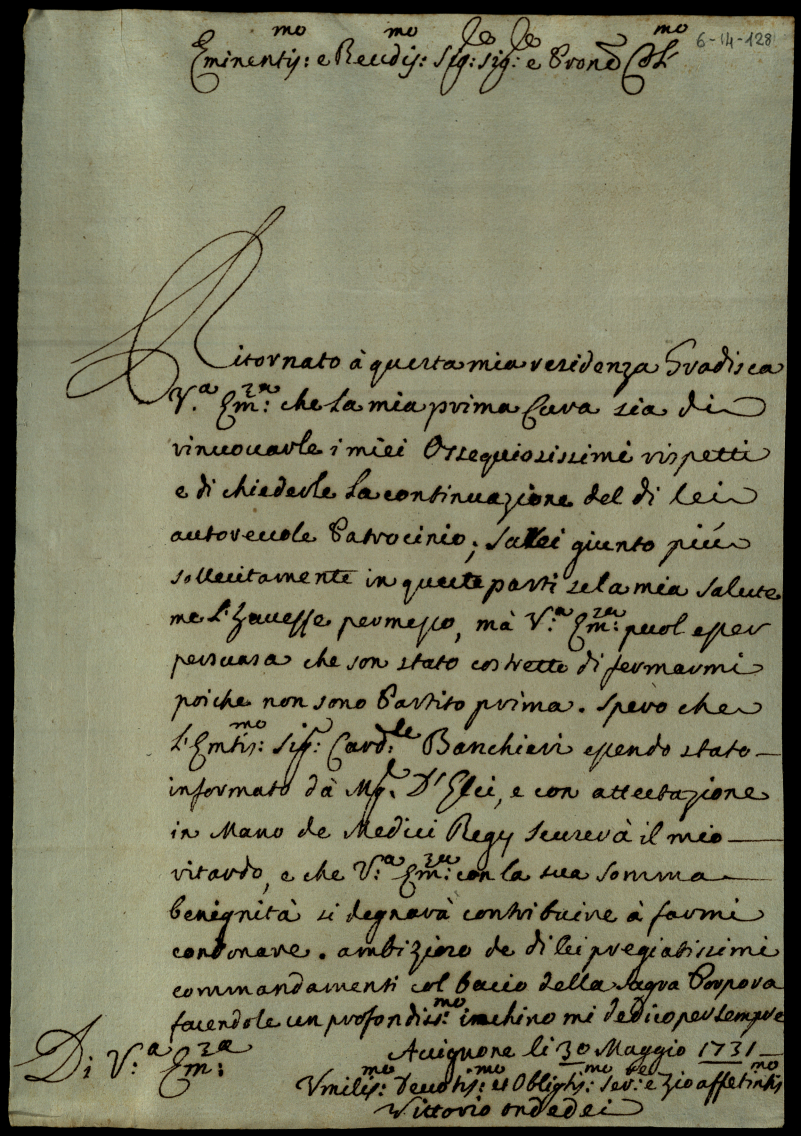 6-14-128
Eminentis:mo e Reudis:mo Sig:re sig:re e Prone Col:mo
Ritornato à questa mia residenza Gradisca
V.a Em:za che la mia prima Cura sia di
rinuouarle i miei Ossequiosissimi rispetti
e di chiederle la continuazione del di lei
autoreuole Patrocinio; Sarei giunto più
sollecitamente in queste parti se la mia salute
me l'hauesse permesso, mà V.a Em:za puol esser
persuasa che son stato costretto di fermarmi
poiche non sono Partito prima. Spero che
L'Emtis:mo Sig.r Card:le Banchieri essendo stato
informato dà Mg.r D'Elci, e con attestazione
in Mano de Medici Regy scuserà il mio
ritardo, e che V.a Em:za con la sua somma
benignità si degnarà contribuire à farmi
condonare. ambizioso de di lei pregiatissimi
commandamenti col bacio della sagra Porpora
facendole un profondiss:mo inchino mi dedico per sempre
Di V.a Em:za
Auignone li 30 Maggio 1731
Vmilis:mo Deuotis:mo et Obligtis:mo Ser:re e Zio affetintis:mo
Vittorio Ondedei